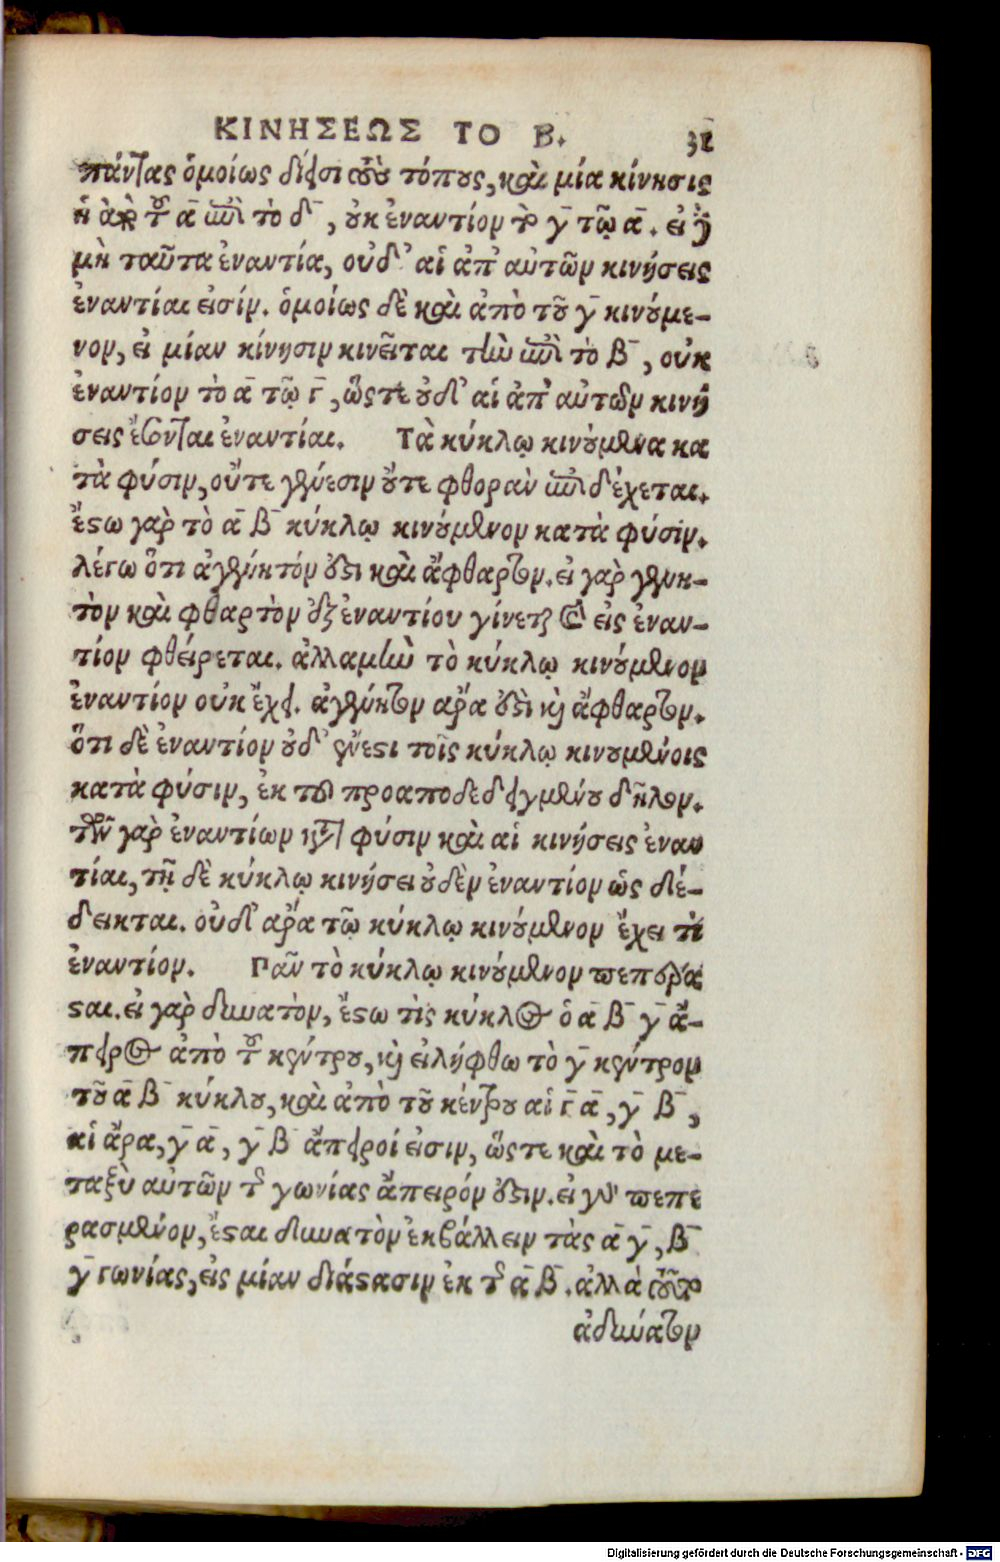 ΚΙΝΗΣΕΩΣ ΤΟ Β. 31
πάντας ὁμοίως δίεισι τοὺς τόπους, καὶ μία κίνησις
ἡ ἀπὸ τοῦ α̅ ἐπὶ τὸ δ̅, οὐκ ἐναντίον τὸ γ̅ τῷ α̅. εἰ δὲ
μὴ ταῦτα ἐναντία, οὐδ' αἱ ἀπ' αὐτῶν κινήσεις
ἐναντίαι εἰσίν. ὁμοίως δὲ καὶ ἀπὸ τοῦ γ̅ κινούμε-
νον, εἰ μίαν κίνησιν κινεῖται τὴν ἐπὶ τὸ β̅, οὐκ
ἐναντίον τὸ α̅ τῷ γ̅, ὥστε οὐδ' αἱ ἀπ' αὐτῶν κινή
σεις ἔσονται ἐναντίαι. Τὰ κύκλῳ κινούμενα κα
τὰ φύσιν, οὔτε γένεσιν οὔτε φθορὰν ἐπιδέχεται.
ἔστω γὰρ τὸ α̅ β̅ κύκλῳ κινούμενον κατὰ φύσιν.
λέγω ὅτι ἀγένητόν ἐστι καὶ ἄφθαρτον. εἰ γὰρ γενη-
τὸν καὶ φθαρτὸν ἐξ ἐναντίου γίνεται καὶ εἰς ἐναν-
τίον φθείρεται. ἀλλαμὴν τὸ κύκλῳ κινούμενον
ἐναντίον οὐκ ἔχει. ἀγένητον ἄρα ἐστὶ καὶ ἄφθαρτον.
ὅτι δὲ ἐναντίον οὐδ' ἔνεστι τοῖς κύκλῳ κινουμένοις
κατὰ φύσιν, ἐκ τῶν προαποδεδειγμένου δῆλον.
τῶν γὰρ ἐναντίων κατὰ φύσιν καὶ αἱ κινήσεις ἐναν
τίαι, τῇ δὲ κύκλῳ κινήσει οὐδὲν ἐναντίον ὡς δέ-
δεικται. οὐδ' ἄρα τῷ κύκλῳ κινούμενον ἔχει τὶ
ἐναντίον. Πᾶν τὸ κύκλῳ κινούμενον πεπέρα
σται. εἰ γὰρ δυνατὸν, ἔστω τὶς κύκλος ὁ α̅ β̅ γ̅ ἄ-
πειρος ἀπὸ τοῦ κέντρου, καὶ εἰλήφθω τὸ γ̅ κέντρον
τοῦ α̅ β̅ κύκλου, καὶ ἀπὸ τοῦ κέντρου αἱ γ̅ α̅, γ̅ β̅,
αἱ ἄρα, γ̅ α̅, γ̅ β̅ ἄπειροί εἰσιν, ὥστε καὶ τὸ με-
ταξὺ αὐτῶν τῆς γωνίας ἄπειρόν ἐστιν. εἰ γὰρ πεπε
ρασμένον, ἔσται δυνατὸν ἐκβάλλειν τὰς α̅ γ̅, β̅
γ̅ γωνίας, εἰς μίαν διάστασιν ἐκ τῆς α̅ β̅. ἀλλὰ τοῦτο
ἀδύνατον
Digitalisierung gefördert durch die Deutsche Forschungsgemeinschaft - DFG